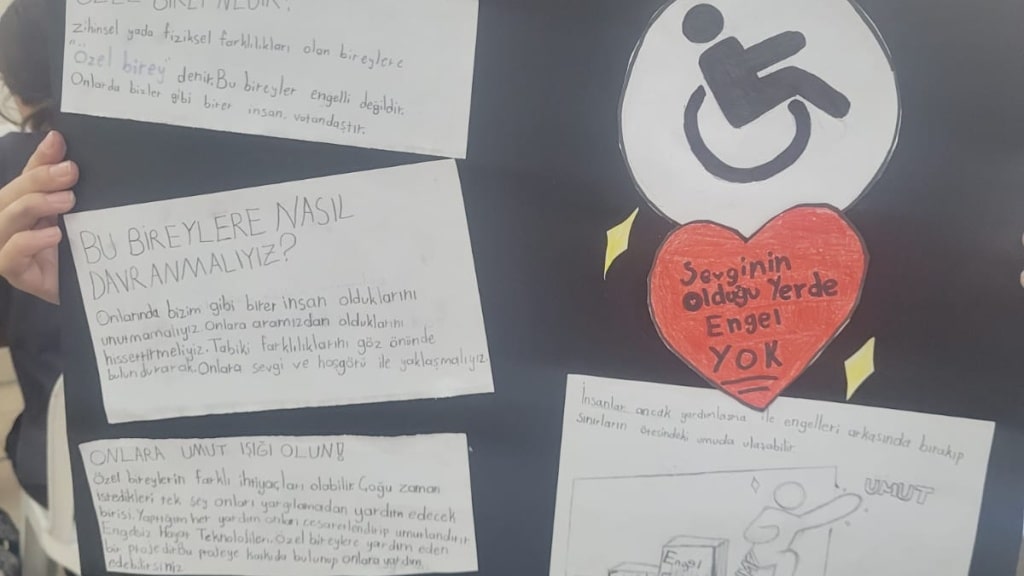 ÖZEL BİREY NEDİR?
zihinsel yada fiziksel farklılıkları olan bireylere
"Özel birey" denir. Bu bireyler engelli değildir.
Onlarda bizler gibi birer insan, vatandaştır.
BU BİREYLERE NASIL
DAVRANMALIYIZ?
Onlarında bizim gibi birer insan olduklarını
unutmamalıyız. Onlara aramızdan olduklarını
hissettirmeliyiz. Tabiki farklılıklarını göz önünde
bulundurarak. Onlara sevgi ve hoşgörü ile yaklaşmalıyız.
ONLARA UMUT IŞIĞI OLUN!!
Özel bireylerin farklı ihtiyaçları olabilir. Çoğu zaman
istedikleri tek şey onları yargılamadan yardım edecek
birisi. Yaptığım her yardım onları cesaretlendirip umutlandırır.
Engelsiz Hayat Teknolojileri. Özel bireylere yardım eden
bir projedir. Bu projeye katkıda bulunup onlara yardım
edebilirsiniz
Sevginin
Olduğu Yerde
Engel
YOK
İnsanlar ancak yardımlaşma ile engelleri arkasında bırakıp
sınırların ötesindeki umuda ulaşabilir.
UMUT
Engel